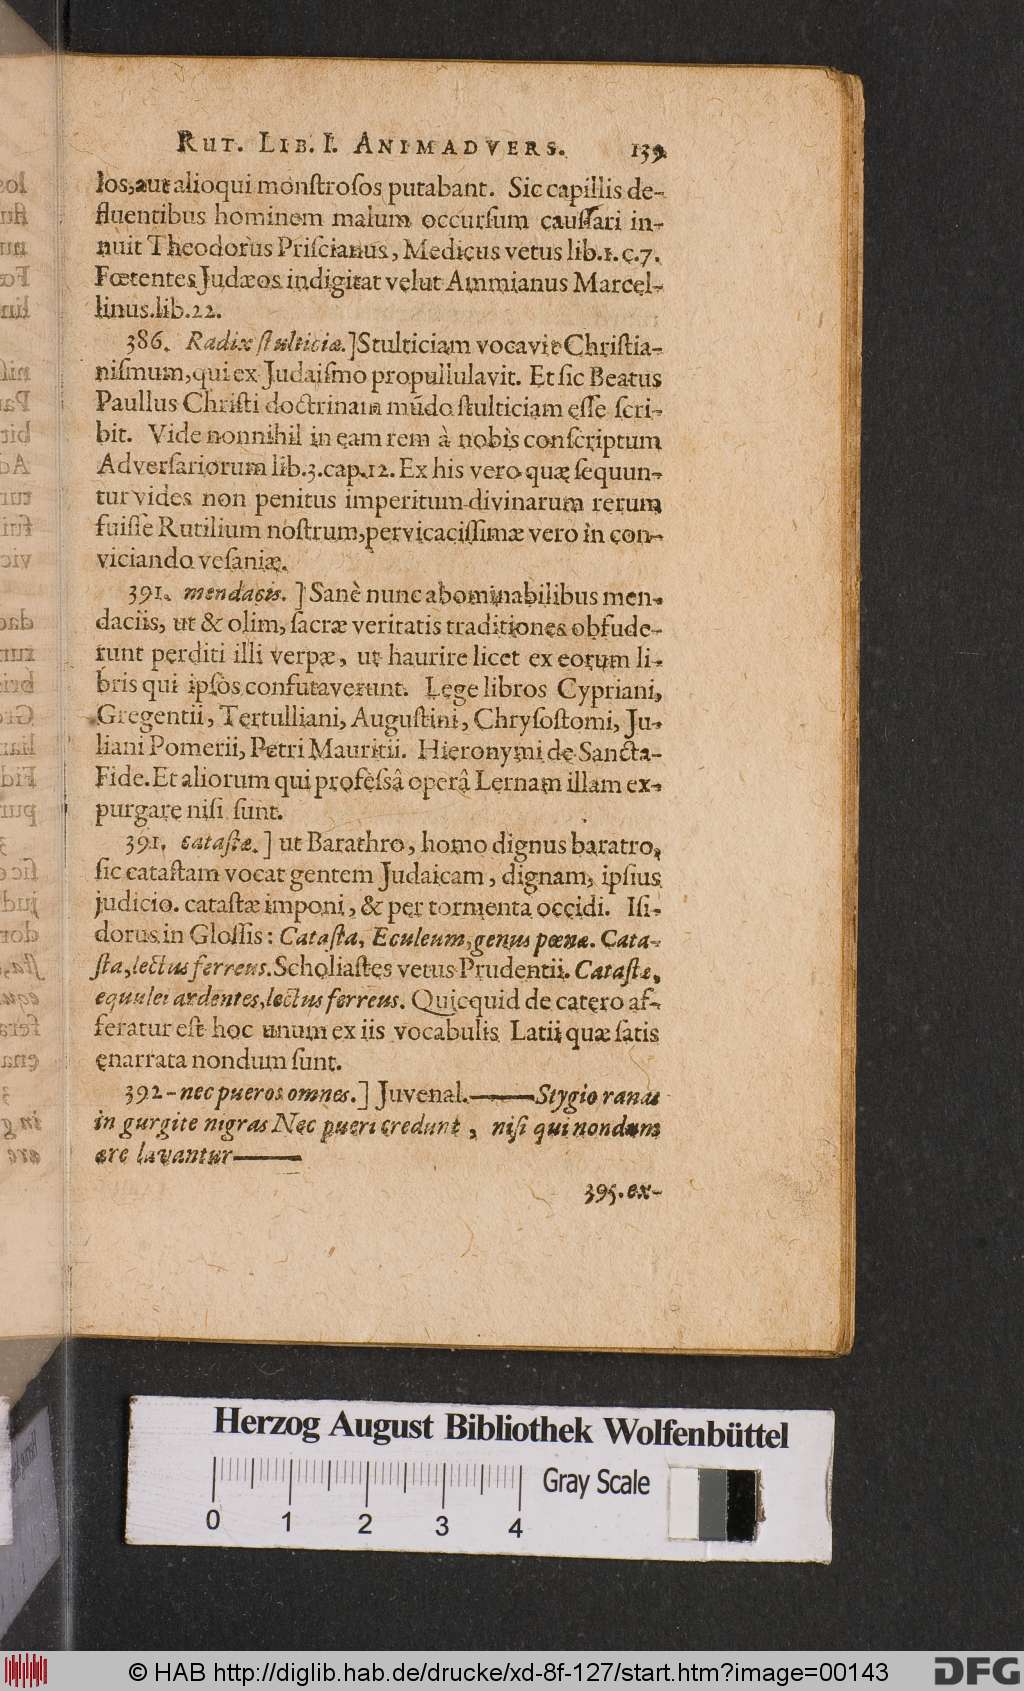 RUT. LIB. I. ANIMADVERS. 139.
los, aut alioqui monſtroſos putabant. Sic capillis de-
fluentibus hominem malum occurſum cauſſari in-
nuit Theodorus Priſcianus, Medicus vetus lib.1.c.7.
Fœtentes Judæos indigitat velut Ammianus Marcel-
linus.lib.22.
386. Radix ſtulticiæ.] Stulticiam vocavit Chriſtia-
niſmum, qui ex Judaiſmo propullulavit. Et ſic Beatus
Paullus Chriſti doctrinam mūdo ſtulticiam eſſe ſcri-
bit. Vide nonnihil in eam rem à nobis conſcriptum
Adverſariorum lib.3.cap.12. Ex his vero quæ ſequun-
tur vides non penitus imperitum divinarum rerum
fuiſſe Rutilium noſtrum, pervicaciſſimæ vero in con-
viciando veſaniæ.
391. mendacis.] Sanè nunc abominabilibus men-
daciis, ut & olim, ſacræ veritatis traditiones obfude-
runt perditi illi verpæ, ut haurire licet ex eorum li-
bris qui ipſos confutaverunt. Lege libros Cypriani,
Gregentii, Tertulliani, Auguſtini, Chryſoſtomi, Ju-
liani Pomerii, Petri Mauritii. Hieronymi de Sancta-
Fide. Et aliorum qui profeſsâ operâ Lernam illam ex-
purgare niſi ſunt.
391. cataſtæ.] ut Barathro, homo dignus baratro,
ſic cataſtam vocat gentem Judaicam, dignam, ipſius
judicio. cataſtæ imponi, & per tormenta occidi. Iſi-
dorus in Gloſſis: Cataſta, Eculeum, genus pœnæ. Cata-
ſta, lectus ferreus. Scholiaſtes vetus Prudentii. Cataſtæ,
equulei ardentes, lectus ferreus. Quicquid de cætero af-
feratur eſt hoc unum ex iis vocabulis Latii quæ ſatis
enarrata nondum ſunt.
392-nec pueros omnes.] Juvenal.——Stygio ranas
in gurgite nigras Nec pueri credunt, niſi qui nondum
ære lavantur——
395.ex-
Herzog August Bibliothek Wolfenbüttel
Gray Scale
0 1 2 3 4
© HAB http://diglib.hab.de/drucke/xd-8f-127/start.htm?image=00143
DFG